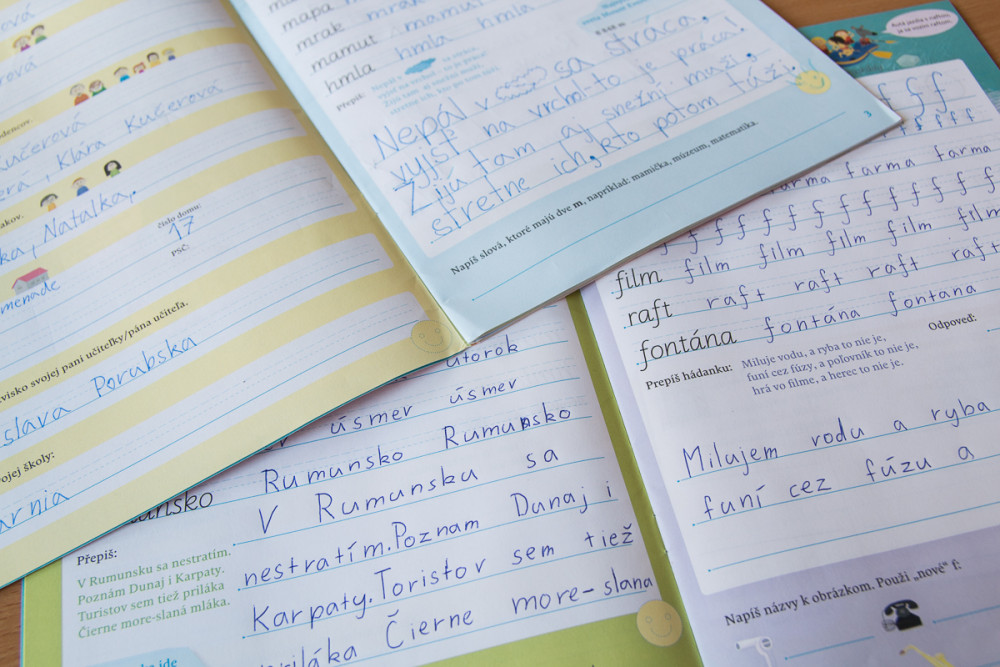 mapa
mrak mrak
mamut mamut
hmla hmla
hmla
Prepíš:
stráca,
Nepál v sa
vyjsť na vrchol-to je práca!
Žijú tam aj snežní muži,
stretne ich, kto potom túži.
Napíš slová, ktoré majú dve m, napríklad: mamička, múzeum, matematika.
3
Kučerová
erá, Klára Kučerová
ka, Natalka.
číslo domu:
17
PSČ:
menade
visko svojej pani učiteľky/pána učiteľa.
slava Porubska
ojej školy:
arnia
utorok
úsmev úsmev
Rumunsko Rumunsko
Prepíš:
V Rumunsku sa nestratím.
Poznám Dunaj i Karpaty.
Turistov sem tiež priláka
Čierne more-slaná mláka.
V Rumunsku sa
nestratím.Poznam Dunaj i
Karpaty.Toristov sem tiež
priláka Čierne more-slana
f f f
farma farma
f f f f f f f f f f
film film film film film
raft raft raft raft raft
fontána fontána fontana
Prepíš hádanku:
Miluje vodu, a ryba to nie je,
funí cez fúzy, a poľovník to nie je,
hrá vo filme, a herec to nie je.
Odpoveď:
Milujem vodu a ryba
funí cez fúzu a
Napíš názvy k obrázkom. Použi „nové“ f: